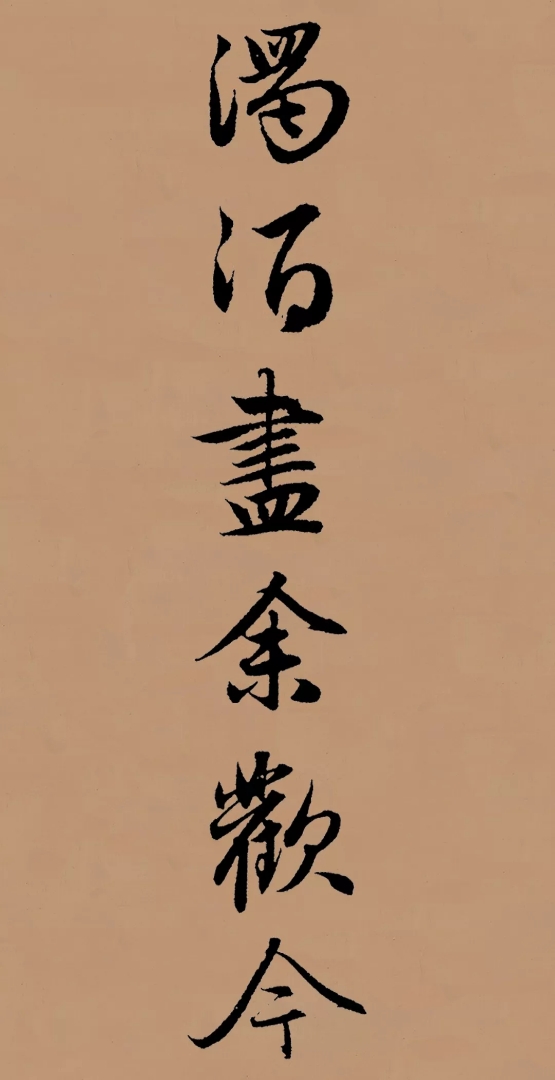 濁酒盡余歡今